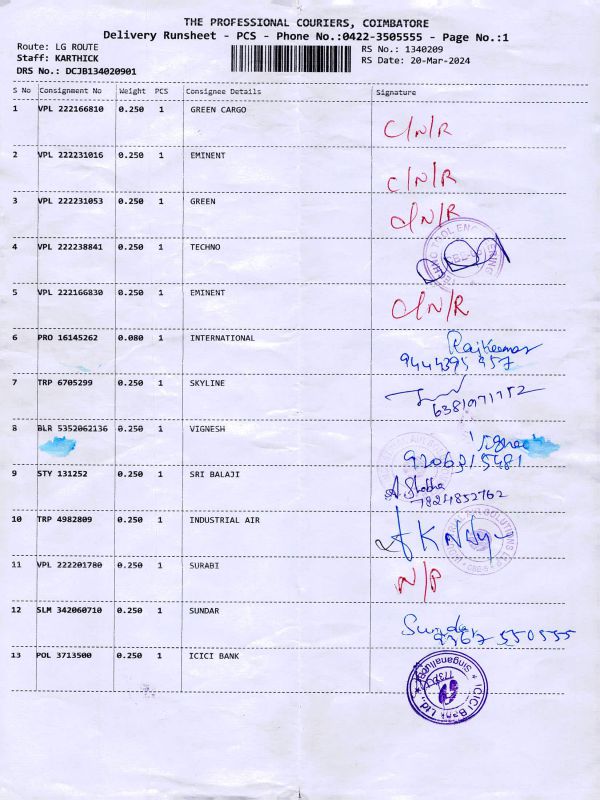 THE PROFESSIONAL COURIERS, COIMBATORE
Delivery Runsheet - PCS - Phone No.:0422-3505555 - Page No.:1
Route: LG ROUTE
RS No.: 1340209
Staff: KARTHICK
RS Date: 20-Mar-2024
DRS No.: DCJB134020901
S No Consignment No Weight PCS Consignee Details Signature
1 VPL 222166810 0.250 1 GREEN CARGO C/N/R
2 VPL 222231016 0.250 1 EMINENT C/N/R
3 VPL 222231053 0.250 1 GREEN C/N/R
4 VPL 222238841 0.250 1 TECHNO
5 VPL 222166830 0.250 1 EMINENT C/N/R
6 PRO 16145262 0.080 1 INTERNATIONAL Rajkumar
9444395 957
7 TRP 6705299 0.250 1 SKYLINE
6381971752
8 BLR 5352062136 0.250 1 VIGNESH
9 STY 131252 0.250 1 SRI BALAJI A. Shobha
7824852762
10 TRP 4982809 0.250 1 INDUSTRIAL AIR
11 VPL 222201780 0.250 1 SURABI N/P
12 SLM 342060710 0.250 1 SUNDAR Sundar
9367 550555
13 POL 3713500 0.250 1 ICICI BANK
ICICI BANK Ltd.
Singanallur